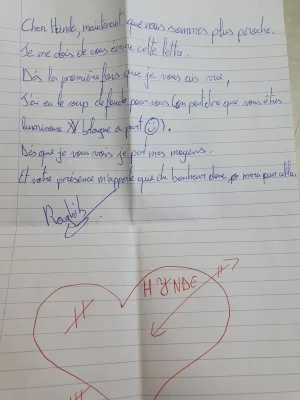 Cher Hynde, maintenant que nous sommes plus proche.
Je me dois de vous ecrire cette lettre.
Dès la première fois que je vous ais vue,
J'ai eu le coup de foudre pour vous (on peut dire que vous êtes
lumineuse XX blague a part ☺).
Dès que je vous vois je pert mes moyens.
Et votre présence m'apporte que du bonheur donc, merci pour cela
Raghib
H YNDE